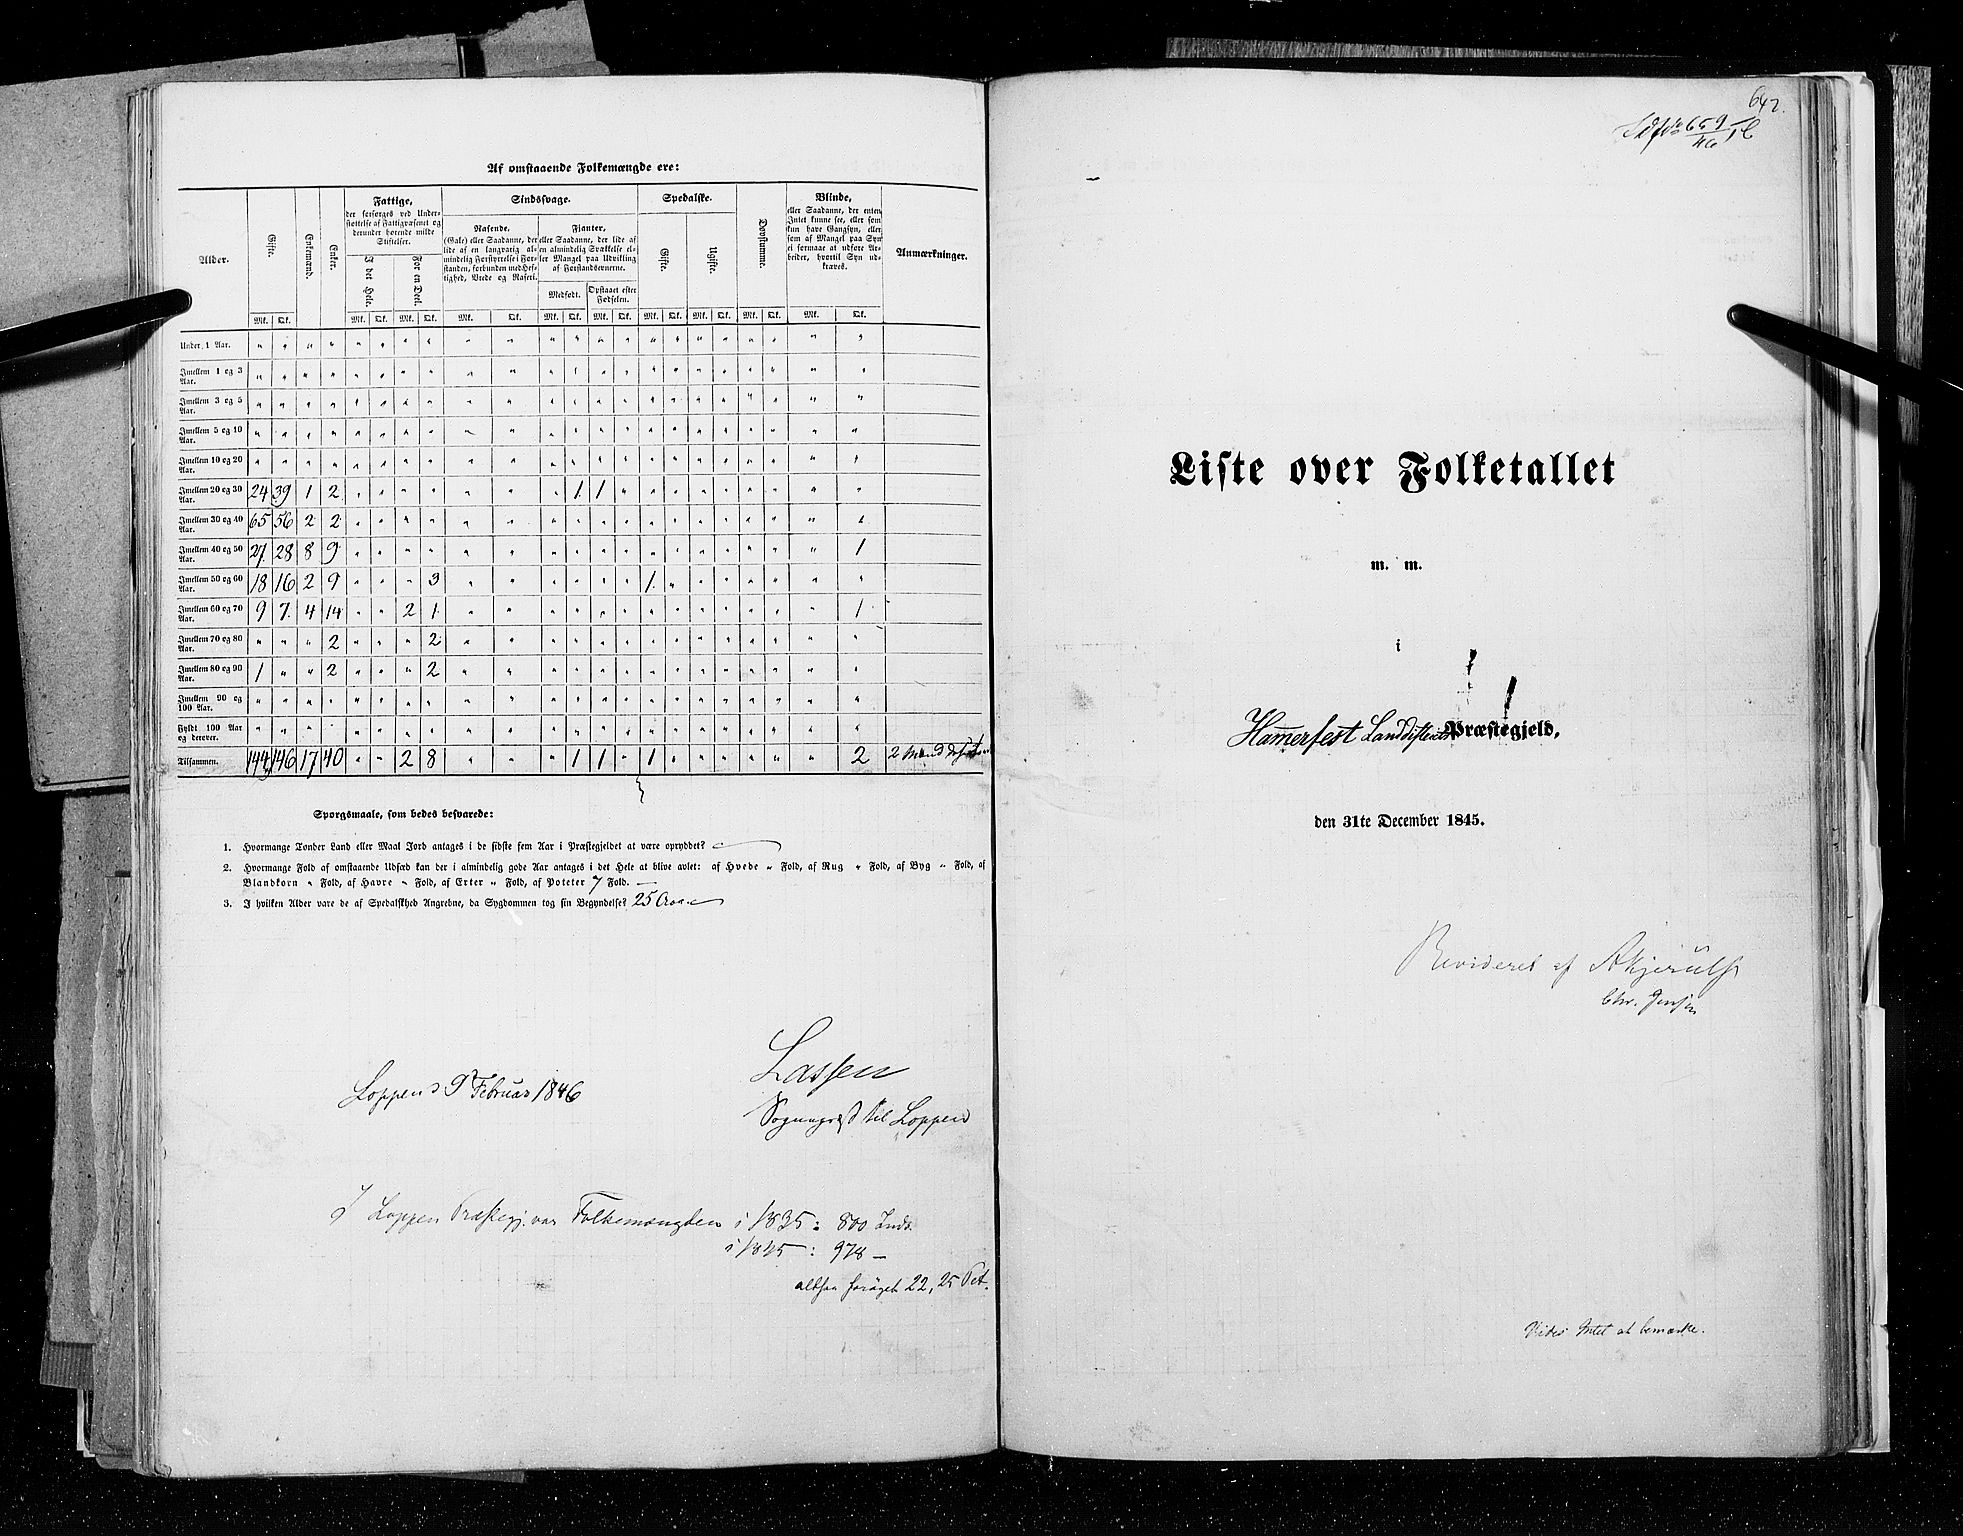 Af omstaaende Folkemængde ere:
Alder. Gifte. Enkemænd. Enker. Fattige, Sindssvage. Spedalske. Døvstumme. Blinde, Anmærkninger.
der forsørges ved Under-
støttelse af Fattigvæsenet og
derunder hørende milde
Stiftelser.
I det Hele. For en Deel.
Rasende.
(Gale) eller Saadanne, der
lide af en langvarig al-
mindelig Forstyrrelse i For-
standen, forbunden med Hef-
tighed, Vrede og Raseri.
Fjanter,
eller Saadanne, der lide af
en almindelig Svækkelse el-
ler Mangel paa Udvikling
af Forstandsevnerne.
Medfødt. Opstaaet efter Fødselen.
Gifte. Ugifte.
eller Saadanne, der enten
Intet kunne see, eller som
kun have Gangsyn, eller
som af Mangel paa Syn
ei formaae at udføre Ar-
beider, hvortil Syn ud-
kræves.
Mk. Qk. Mk. Qk. Mk. Qk. Mk. Qk. Mk. Qk. Mk. Qk. Mk. Qk. Mk. Qk. Mk. Qk. Mk. Qk.
Under 1 Aar. " " " " " " " " " " " " " " " " " " " " " "
Imellem 1 og 3 Aar. " " " " " " " " " " " " " " " " " " " " " "
Imellem 3 og 5 Aar. " " " " " " " " " " " " " " " " " " " " " "
Imellem 5 og 10 Aar. " " " " " " " " " " " " " " " " " " " " " "
Imellem 10 og 20 Aar. " " " " " " " " " " " " " " " " " " " " " "
Imellem 20 og 30 Aar. 24 39 1 2 " " " " " " " 1 1 " " " " " " " " "
Imellem 30 og 40 Aar. 65 56 2 2 " " " " " " " " " " " " " " " " " "
Imellem 40 og 50 Aar. 27 28 8 9 " " " " " " " " " " " " " " " " " 1
Imellem 50 og 60 Aar. 18 16 2 9 " " " 3 " " " " " " 1 " " " " " " "
Imellem 60 og 70 Aar. 9 7 4 14 " " 2 1 " " " " " " " " " " " " " 1
Imellem 70 og 80 Aar. " " " 2 " " " 2 " " " " " " " " " " " " " "
Imellem 80 og 90 Aar. 1 " " 2 " " " 2 " " " " " " " " " " " " " "
Imellem 90 og 100 Aar. " " " " " " " " " " " " " " " " " " " " " "
Fyldt 100 Aar og derover. " " " " " " " " " " " " " " " " " " " " " "
Tilsammen. 144 146 17 40 " " 2 8 " " " 1 1 " 1 " " " " " " 2 2 Mænd
Spørgsmaale, som bedes besvarede:
1. Hvormange Tønder Land eller Maal Jord antages i de sidste fem Aar i Præstegjeldet at være opryddet?
2. Hvormange Fold af omstaaende Udsæd kan der i almindelig gode Aar antages i det Hele at blive avlet: af Hvede " Fold, af Rug " Fold, af Byg " Fold, af
Blandkorn " Fold, af Havre " Fold, af Erter " Fold, af Poteter 7 Fold. —
3. I hvilken Alder vare de af Spedalskhed Angrebne, da Sygdommen tog sin Begyndelse? 25 Aar
Loppen d 9 Februar 1846
Lassen
Sognepræst til Loppen
I Loppen Præstegj. var Folkemængden i 1835: 800 Indv.
i 1845: 978 —
altsaa forøget 22,25 Pct.
642.
659
46
Liste over Folketallet
m. m.
i
Hamerfest Landdistrikt Præstegjeld,
den 31te December 1845.
Revideret af AKjerulf
Chr. Jensen
Vides Intet at bemærke.